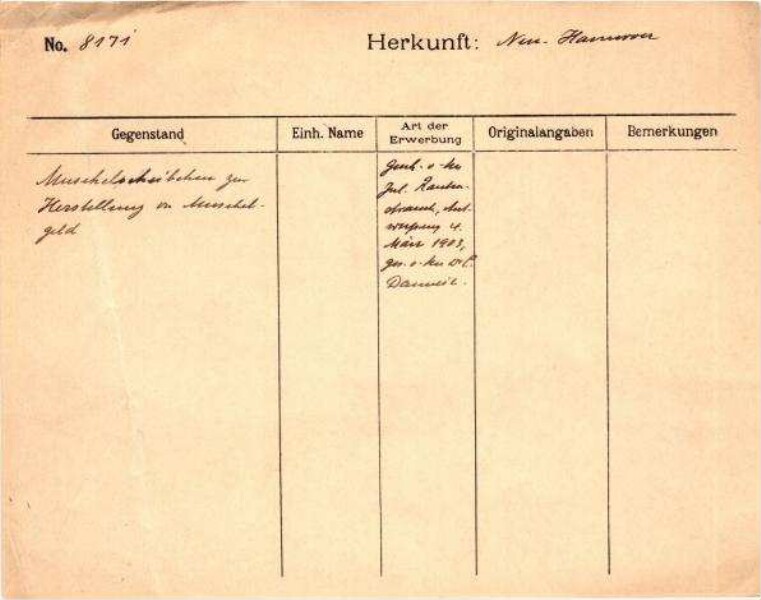 No. 8171 Herkunft: Neu-Hannover
Gegenstand Einh. Name Art der Erwerbung Originalangaben Bemerkungen
Muschelscheibchen zur
Herstellung v. Muschel-
geld
Gesch. v. Hn
Jul. Rauten-
strauch, Ant-
werpen 4.
März 1903,
ges. v. Hn